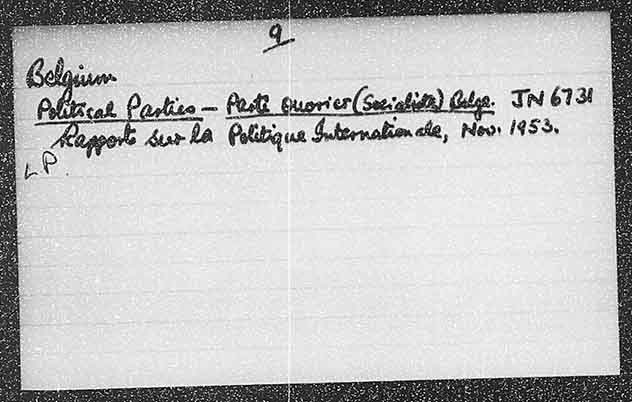 9
Belgium
Political Parties - Parti Ouvrier (Socialiste) Belge. JN 6731
Rapports sur la Politique Internationale, Nov. 1953.
LP.